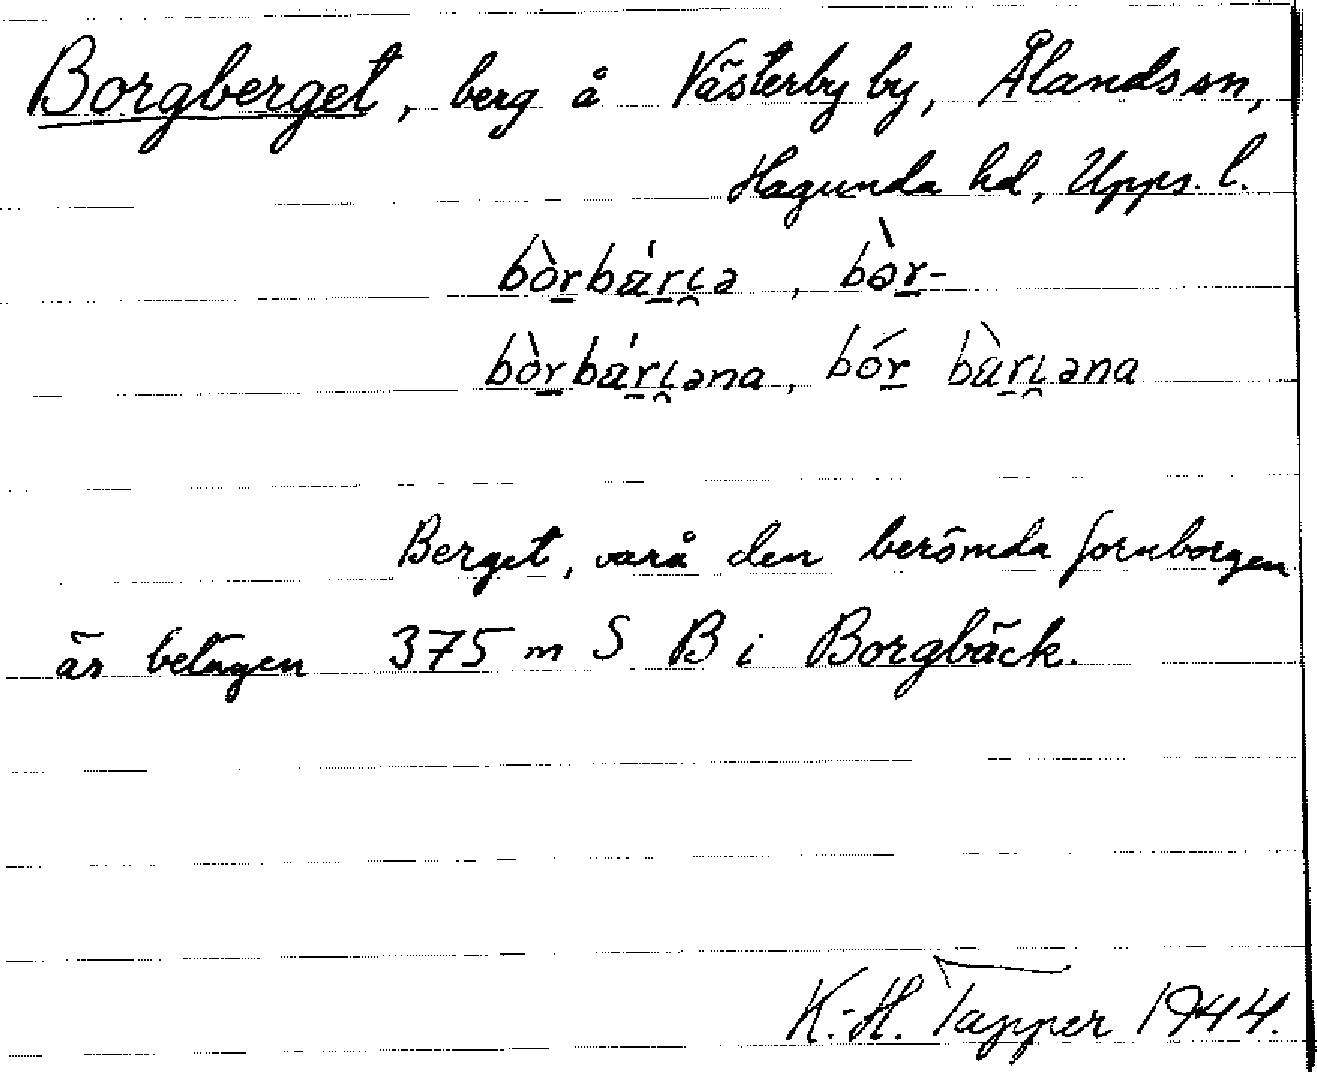 Borgberget, berg å Västerby by, Ålands sn,
Hagunda hd, Upps. l.
bòr̲bá̈r̲i̯ə, bə̀r̲-
bòr̲bá̈r̲i̯əna, bór̲ bä̀r̲i̯əna
Berget, varå den berömda fornborgen
är belägen 375 m S B i Borgbäck.
K.-H. Tapper 1944.